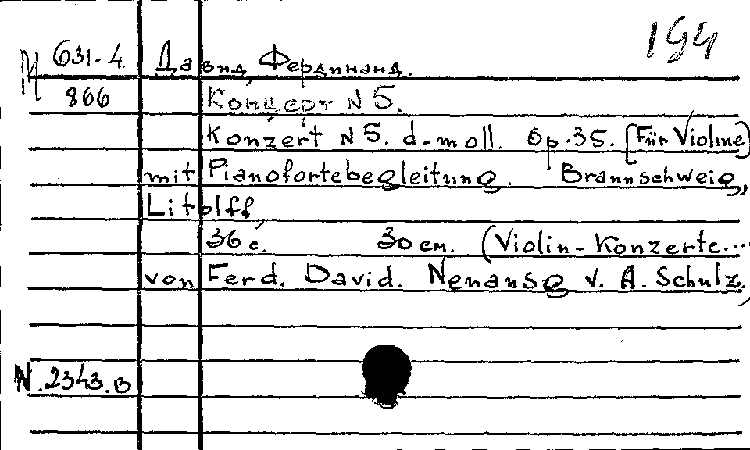 194
М 631-4 Давид, Фердинанд.
866 Концерт N 5.
Konzert N 5. d-moll. Op. 35. [Für Violine]
mit Pianofortebegleitung. Braunschweig,
Litolff,
36 с. 30 см. (Violin-Konzerte...
von Ferd. David. Neuausg v. A. Schulz,
N. 2343.В